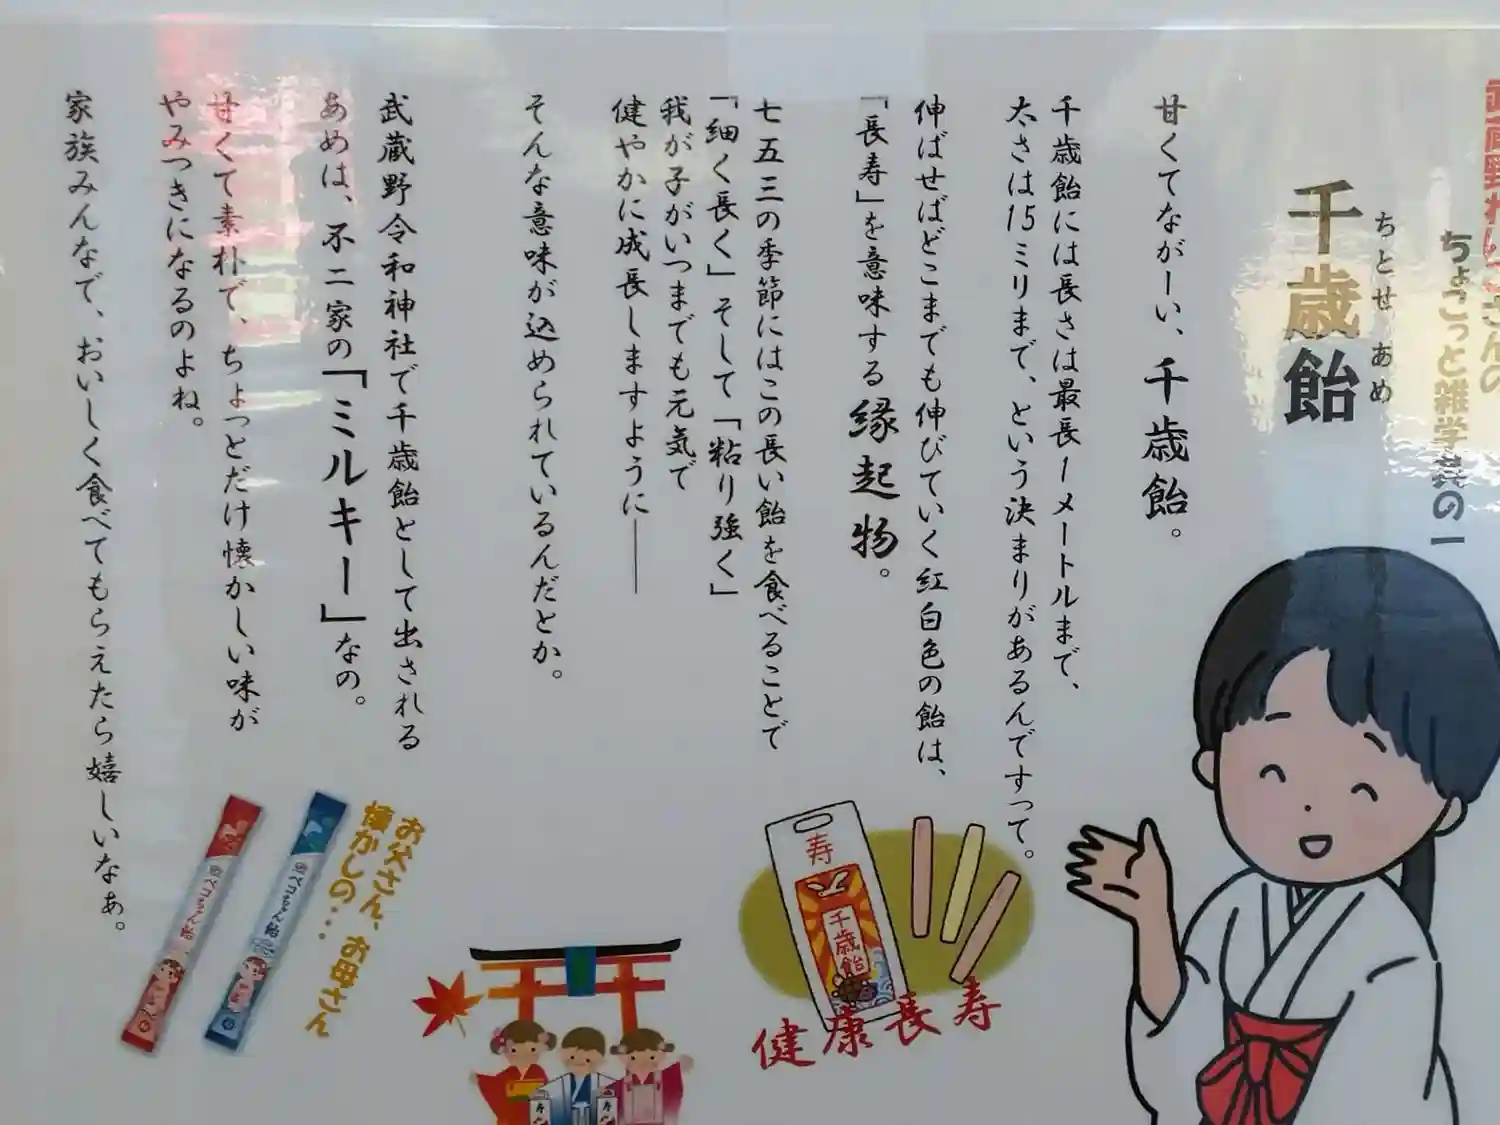 武蔵野れいわさんの
ちょこっと雑学 其の一
ちとせ あめ
千歳飴
甘くてながーい、千歳飴。
千歳飴には長さは最長1メートルまで、
太さは15ミリまで、という決まりがあるんですって。
伸ばせばどこまでも伸びていく紅白色の飴は、
「長寿」を意味する縁起物。
七五三の季節にはこの長い飴を食べることで
「細く長く」そして「粘り強く」
我が子がいつまでも元気で
健やかに成長しますように――
そんな意味が込められているんだとか。
武蔵野令和神社で千歳飴として出される
あめは、不二家の「ミルキー」なの。
甘くて素朴で、ちょっとだけ懐かしい味が
やみつきになるのよね。
家族みんなで、おいしく食べてもらえたら嬉しいなぁ。
寿
千歳飴
健康長寿
お父さん、お母さん
懐かしの…
ペコちゃん飴
ペコちゃん飴
寿
寿